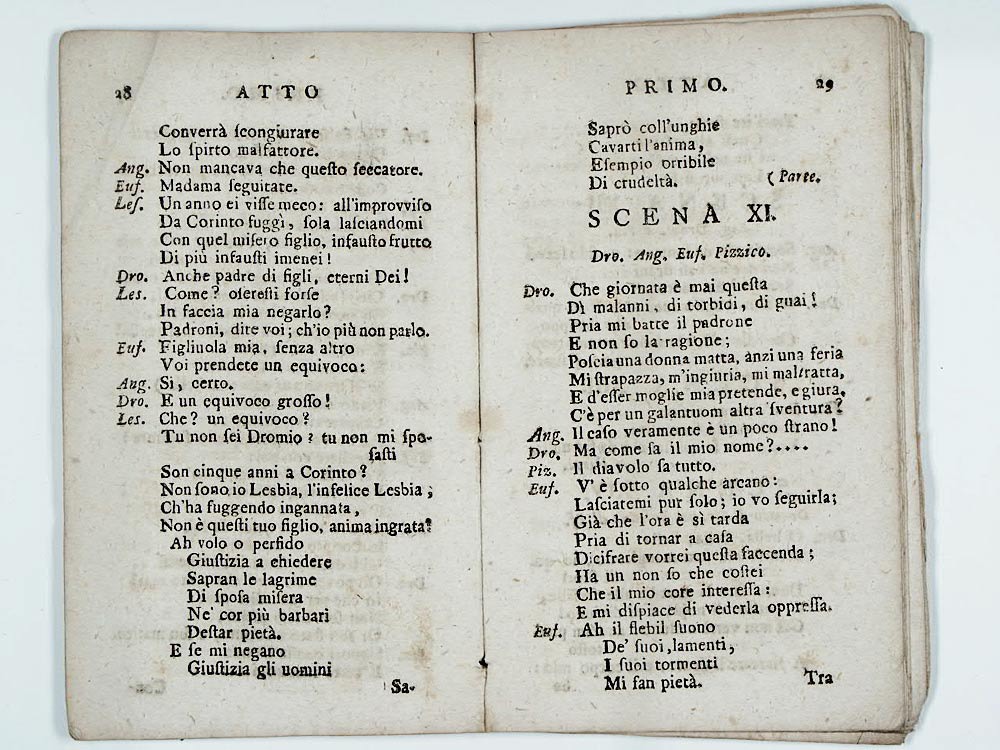 28 ATTO
Converrà ſcongiurare
Lo ſpirto malfattore.
Ang. Non mancava che queſto ſeccatore.
Euf. Madama ſeguitate.
Leſ. Un anno ei viſſe meco: all'improvviſo
Da Corinto fuggì, ſola laſciandomi
Con quel miſero figlio, infauſto frutto
Di più infauſti imenei!
Dro. Anche padre di figli, eterni Dei!
Leſ. Come? oſereſti forſe
In faccia mia negarlo?
Padroni, dite voi; ch'io più non parlo.
Euf. Figliuola mia, ſenza altro
Voi prendete un equivoco:
Ang. Sì, certo.
Dro. E un equivoco groſſo!
Les. Che? un equivoco?
Tu non ſei Dromio? tu non mi ſpo-
ſaſti
Son cinque anni a Corinto?
Non ſono io Lesbia, l'infelice Lesbia;
Ch'ha fuggendo ingannata,
Non è queſti tuo figlio, anima ingrata?
Ah volo o perfido
Giuſtizia a chiedere
Sapran le lagrime
Di ſpoſa miſera
Ne' cor più barbari
Deſtar pietà.
E ſe mi negano
Giuſtizia gli uomini
Sa-
PRIMO. 29
Saprò coll'unghie
Cavarti l'anima,
Eſempio orribile
Di crudeltà. (Parte.
SCENA XI.
Dro. Ang. Euf. Pizzico.
Dro. Che giornata è mai queſta
Di malanni, di torbidi, di guai!
Pria mi batte il padrone
E non ſo la ragione;
Poſcia una donna matta, anzi una feria
Mi ſtrapazza, m'ingiuria, mi maltratta,
E d'eſſer moglie mia pretende, e giura,
C'è per un galantuom altra ſventura?
Ang. Il caſo veramente è un poco ſtrano!
Dro. Ma come ſa il mio nome?....
Piz. Il diavolo ſa tutto.
Euf. V' è ſotto qualche arcano:
Laſciatemi pur ſolo; io vo ſeguirla;
Già che l'ora è sì tarda
Pria di tornar a caſa
Dicifrare vorrei queſta faccenda;
Ha un non ſo che coſtei
Che il mio core intereſſa:
E mi diſpiace di vederla oppreſſa.
Euf. Ah il flebil ſuono
De' ſuoi, lamenti,
I ſuoi tormenti
Mi fan pietà.
Tra